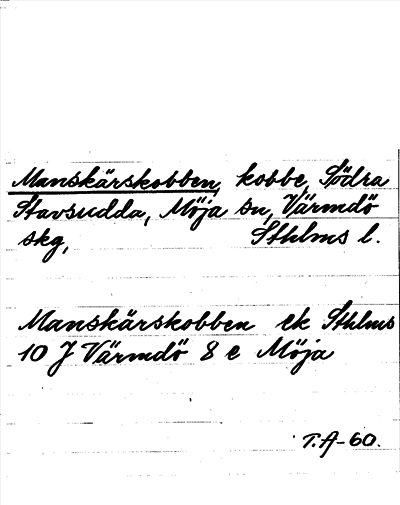 Manskärskobben, kobbe, Södra
Stavsudda, Möja sn, Värmdö
skg, Sthlms l.
Manskärskobben ek Sthlms
10 J Värmdö 8 e Möja
T.A-60.